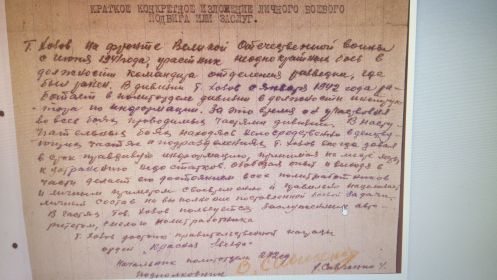 КРАТКОЕ КОНКРЕТНОЕ ИЗЛОЖЕНИЕ ЛИЧНОГО БОЕВОГО
ПОДВИГА ИЛИ ЗАСЛУГ.
на фронте Великой Отечественной войны
с июня 1941 года, участник неоднократных боев в
должности командира отделения разведки, где
был ранен. В дивизии Т. с января 1942 года ра-
ботает в политотделе дивизии в должности инструк-
тора по информации. За это время он участвовал
во всех боях проводимых частями дивизии. В насту-
пательных боях находясь непосредственно в действу-
ющих частях и подразделениях, Т. всегда давал
в срок правдивую информацию, принимая на месте меры
к устранению недостатков, боевой опыт
части делает его достоянием всех политработников
и личным примером
личный состав на выполнение поставленной боевой задачи.
В частях тов. пользуется заслуженным авто-
ритетом, смелого политработника
Т. достоин правительственной награды
орден „Красная Звезда“
Начальник политотдела
Подполковник